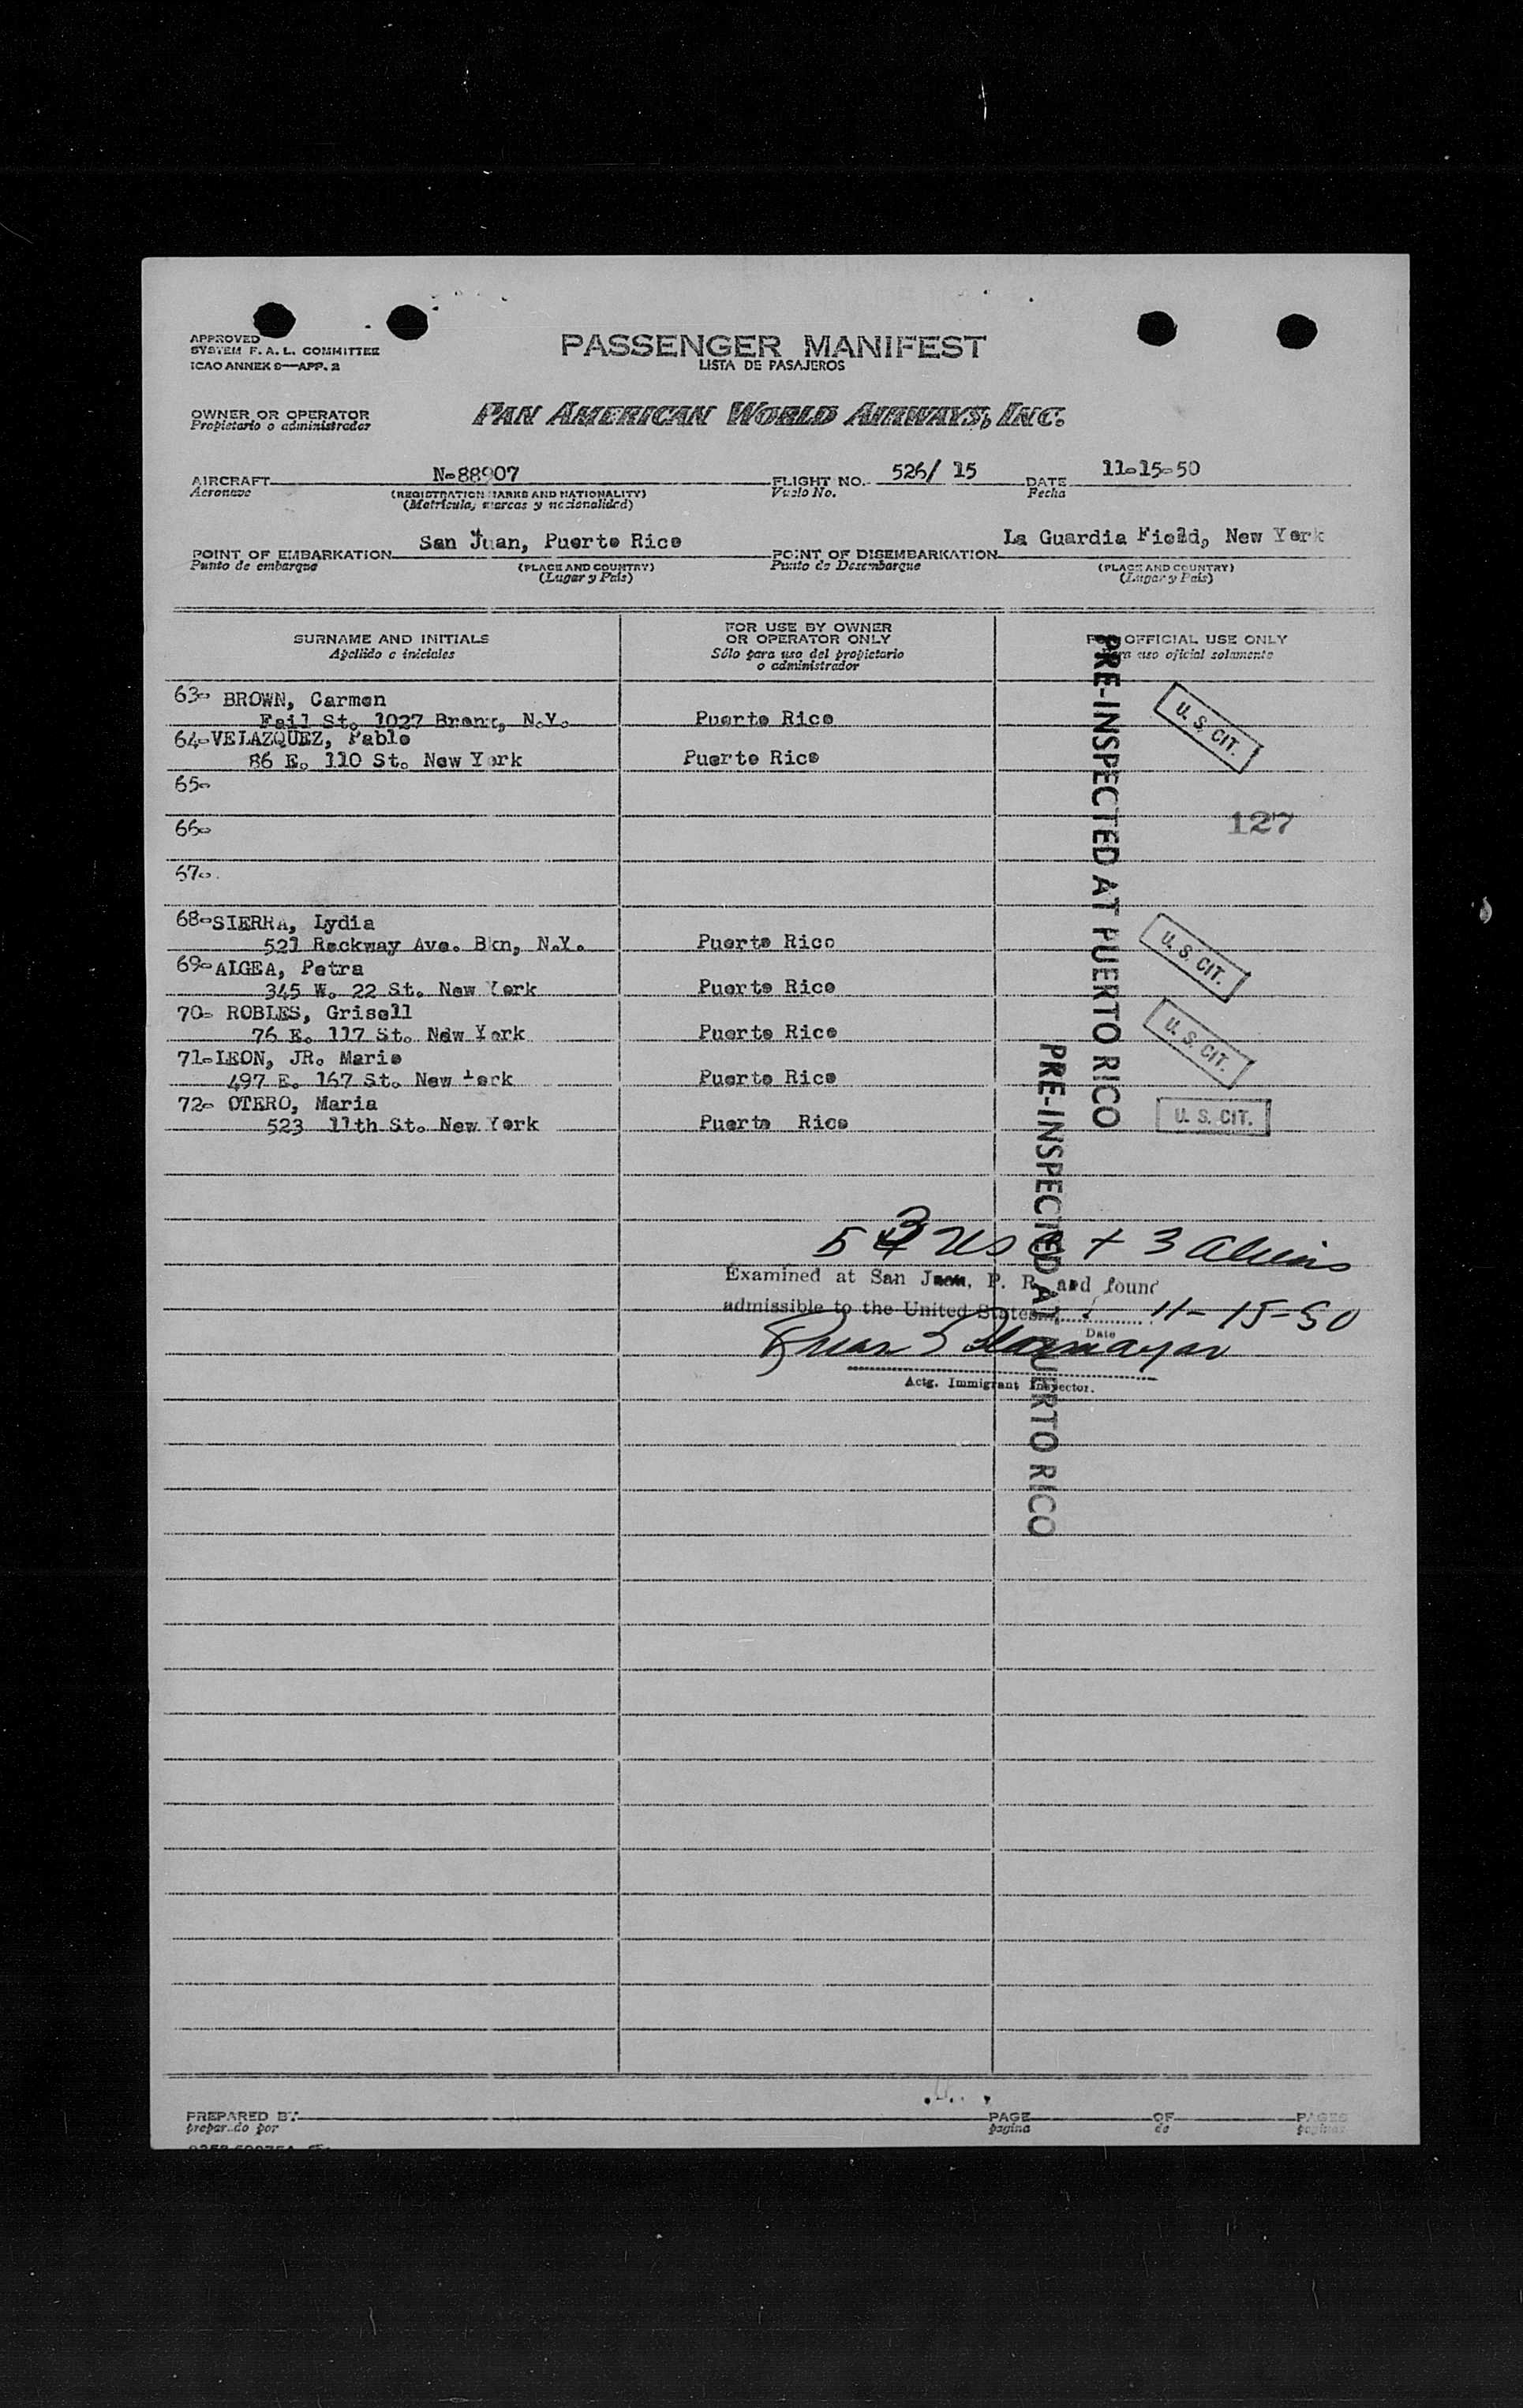 APPROVED
SYSTEM F. A. L. COMMITTEE
ICAO ANNEX 9—APP. 2
PASSENGER MANIFEST
LISTA DE PASAJEROS
OWNER OR OPERATOR
Propietario o administrador
PAN AMERICAN WORLD AIRWAYS, INC.
AIRCRAFT N-88907 FLIGHT NO. 526/ 15 DATE 11-15-50
Aeronave (REGISTRATION MARKS AND NATIONALITY) Vuelo No. Fecha
(Matrícula, marcas y nacionalidad)
POINT OF EMBARKATION San Juan, Puerto Rico POINT OF DISEMBARKATION La Guardia Field, New York
Punto de embarque (PLACE AND COUNTRY) Punto de Desembarque (PLACE AND COUNTRY)
(Lugar y País) (Lugar y País)
SURNAME AND INITIALS FOR USE BY OWNER OR OPERATOR ONLY FOR OFFICIAL USE ONLY
Apellido e iniciales Sólo para uso del propietario o administrador Para uso oficial solamente
63- BROWN, Carmen
Fail St. 1027 Bronx, N.Y. Puerto Rico U. S. CIT.
64-VELAZQUEZ, Pablo
86 E. 110 St. New York Puerto Rico
65-
66- 127
67-
68-SIERRA, Lydia
521 Rockway Ave. Bkn, N.Y. Puerto Rico U. S. CIT.
69-ALGEA, Petra
345 W. 22 St. New York Puerto Rico
70- ROBLES, Grisell
76 E. 117 St. New York Puerto Rico U. S. CIT.
71-LEON, JR. Mario
497 E. 167 St. New York Puerto Rico
72- OTERO, Maria
523 11th St. New York Puerto Rico U. S. CIT.
PRE-INSPECTED AT PUERTO RICO
PRE-INSPECTED AT PUERTO RICO
53 US C + 3 aliens
Examined at San Juan, P. R. and found
admissible to the United States 11-15-50
Date
Actg. Immigrant Inspector.
PREPARED BY PAGE OF PAGES
preparado por página de páginas